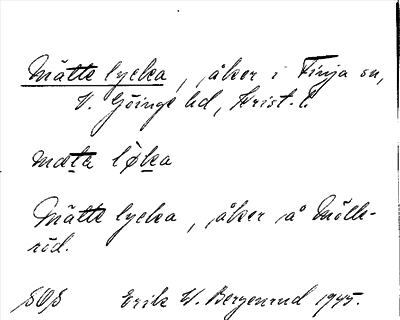 Mätte lycka, åker i Finja sn,
V. Göinge hd, Krist. l.
mæta lø̜ka
Mätte lycka, åker å Mölle-
röd.
SOS Erik W. Bergenrud 1945.